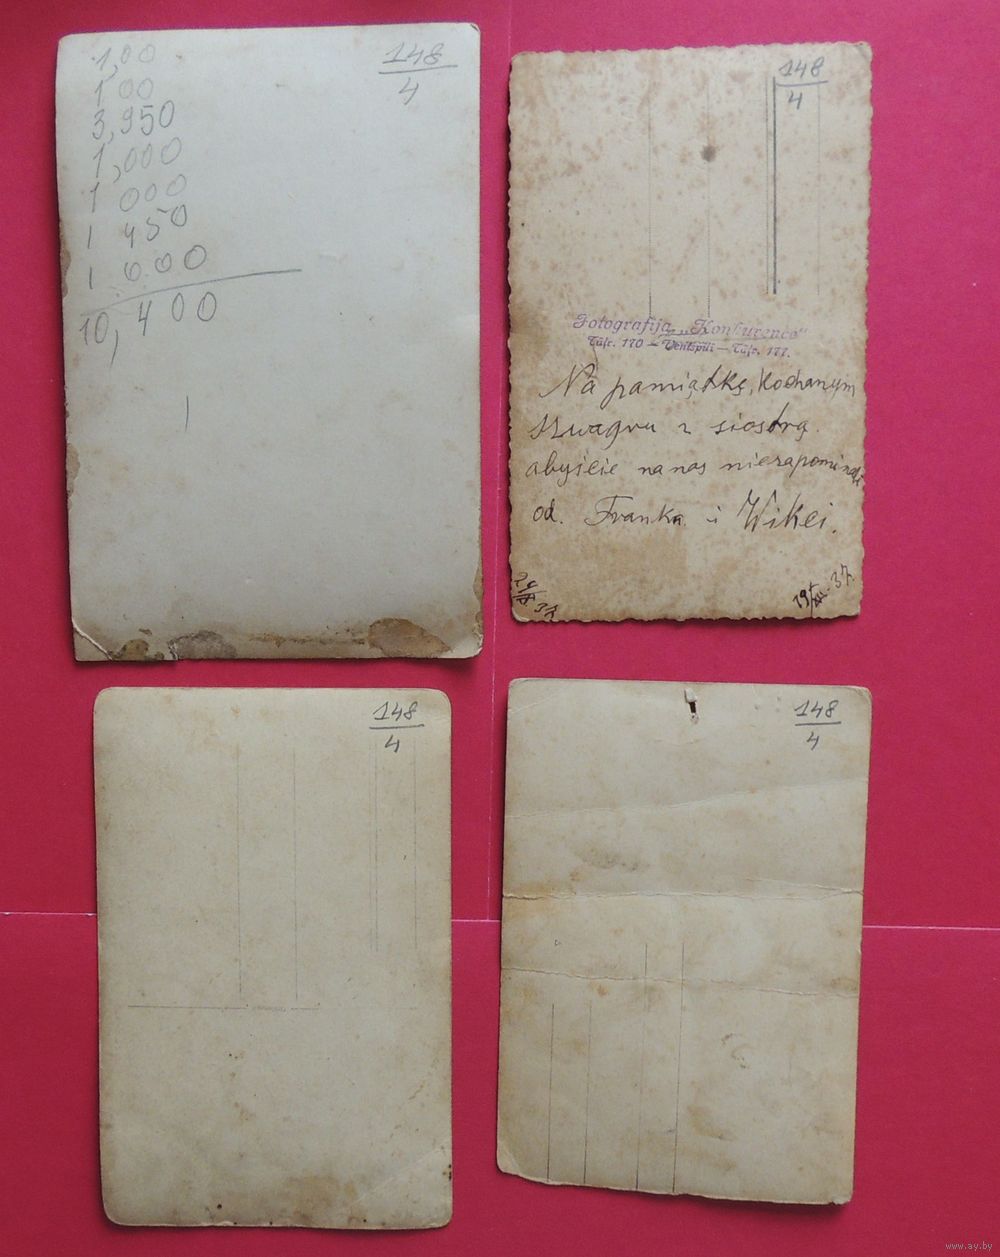 1,00
1 00
3,950
1,000
1 000
1 450
1 600
10,400
148
4
148
4
Fotografija „Konkurence“
Tālr. 170 — Ventspilī — Tālr. 177.
Na pamiątkę, kochanym
szwagru z siostrą.
abyście na nas niezapominali
od. Franka i Wikci.
37
19/XII 37.
148
4
148
4
www.ay.by